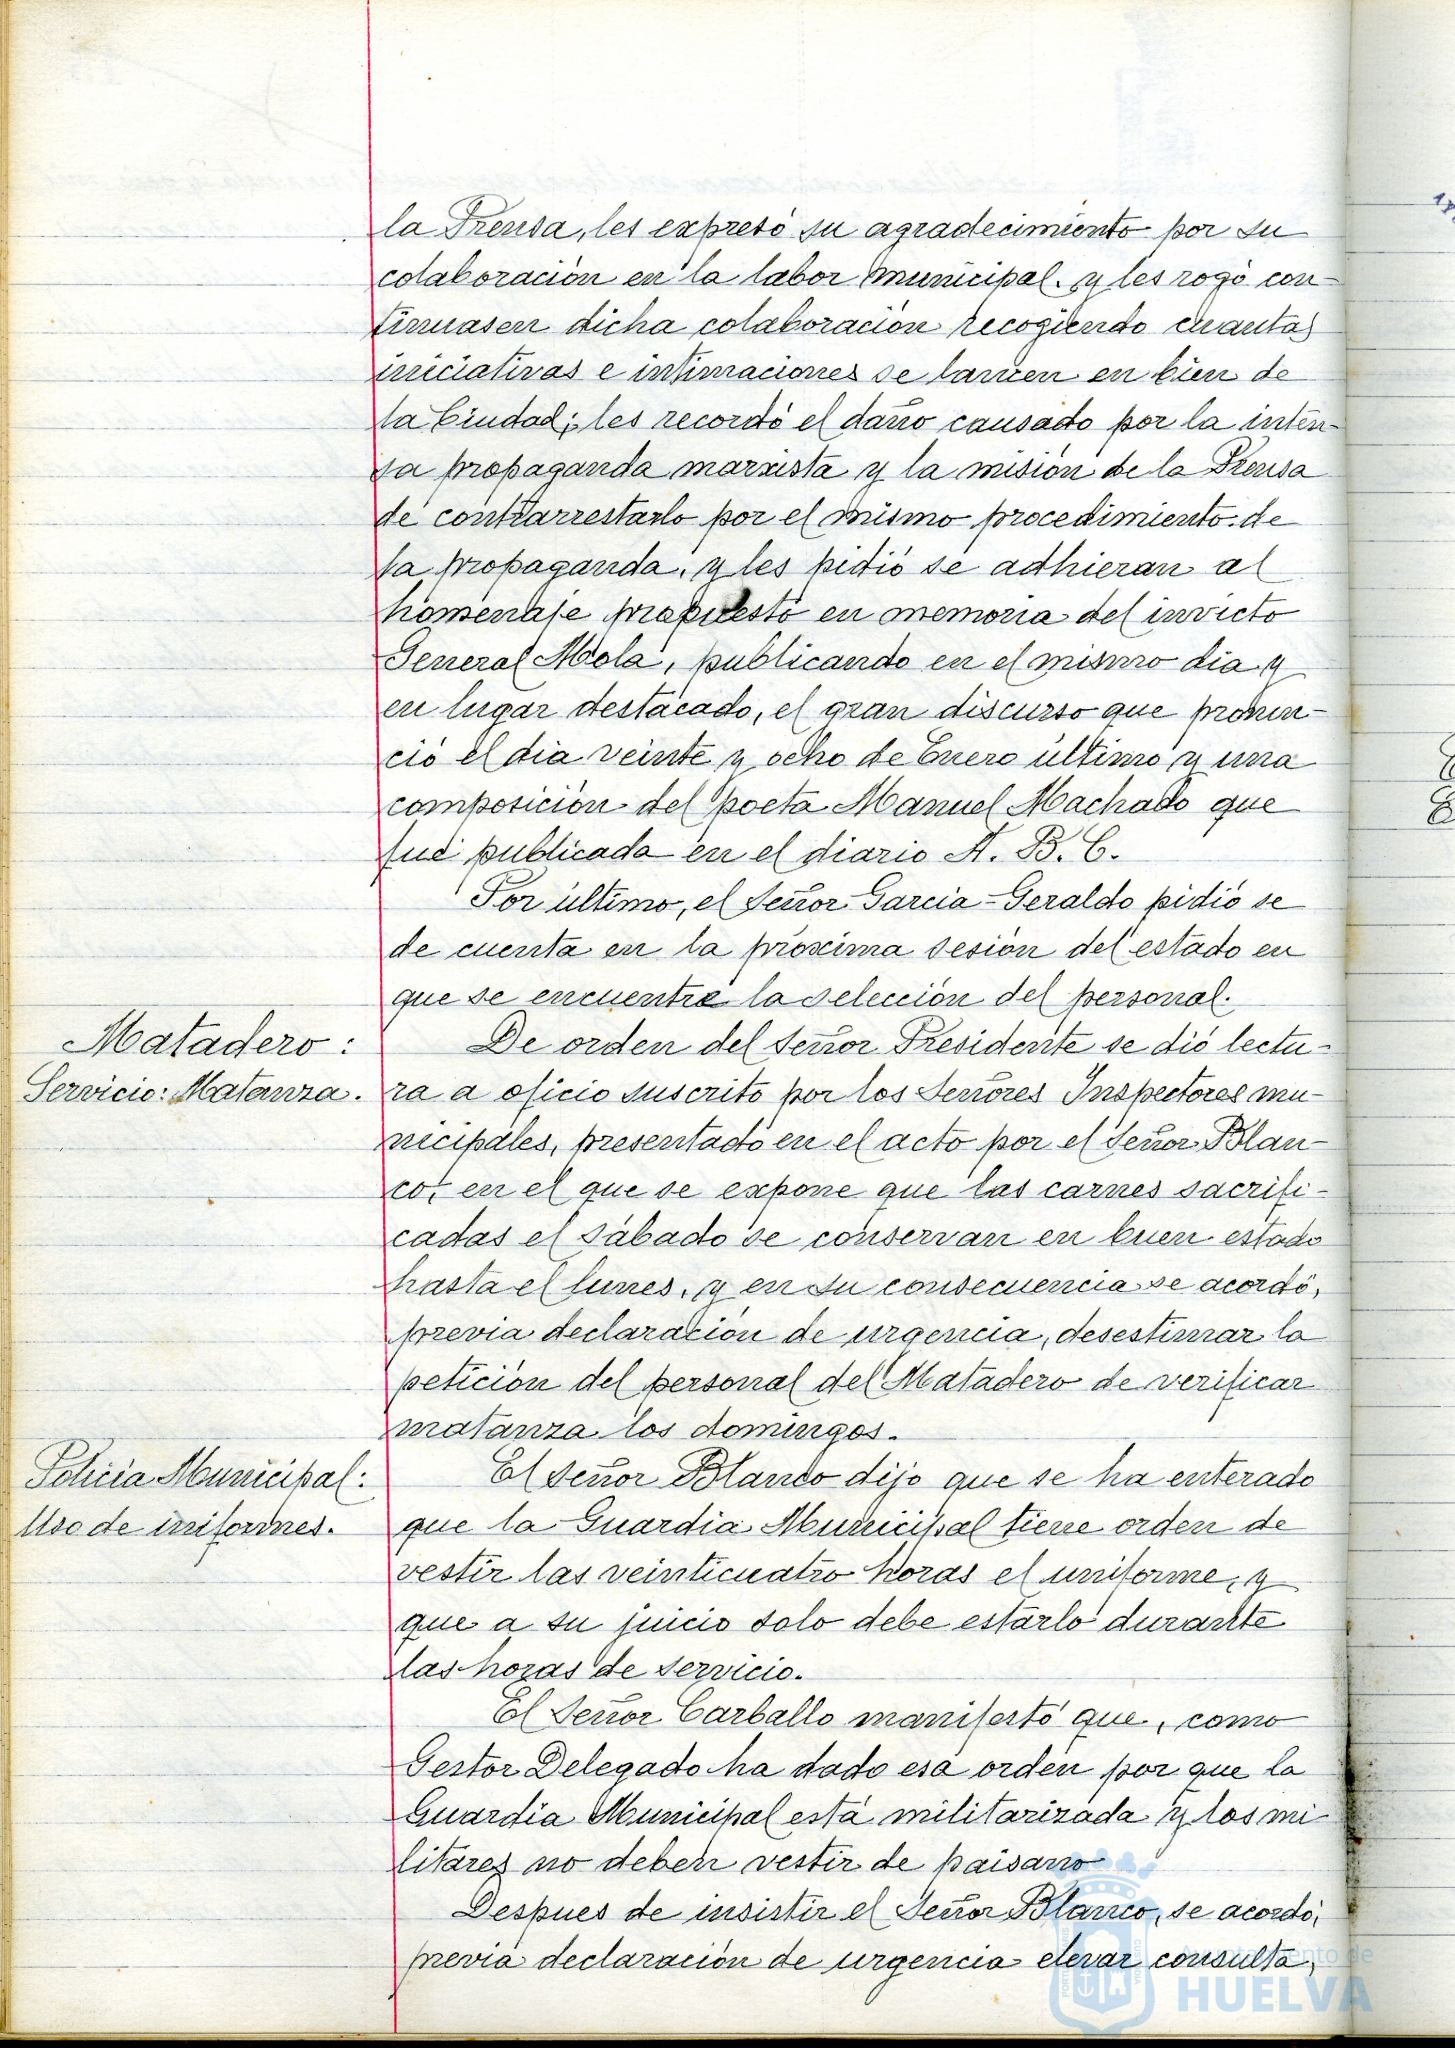 la Prensa, les expresó su agradecimiento por su
colaboración en la labor municipal. y les rogó con-
tinuasen dicha colaboración recogiendo cuantas
iniciativas e intimaciones se lancen en bien de
la Ciudad; les recordó el daño causado por la inten-
sa propaganda marxista y la misión de la Prensa
de contrarrestarlo por el mismo procedimiento de
la propaganda, y les pidió se adhieran al
homenaje propuesto en memoria del invicto
General Mola, publicando en el mismo dia y
en lugar destacado, el gran discurso que pronun-
ció el dia veinte y ocho de Enero último y una
composición del poeta Manuel Machado que
fué publicada en el diario A. B. C.
Por último, el Señor Garcia-Geraldo pidió se
de cuenta en la próxima sesión del estado en
que se encuentre la selección del personal.
Matadero:
Servicio: Matanza.
De orden del Señor Presidente se dió lectu-
ra a oficio suscrito por los Señores Inspectores mu-
nicipales, presentado en el acto por el Señor Blan-
co, en el que se expone que las carnes sacrifi-
cadas el sábado se conservan en buen estado
hasta el lunes, y en su consecuencia se acordó,
previa declaración de urgencia, desestimar la
petición del personal del Matadero de verificar
matanza los domingos.
Policia Municipal:
Uso de uniformes.
El Señor Blanco dijo que se ha enterado
que la Guardia Municipal tiene orden de
vestir las veinticuatro horas el uniforme, y
que a su juicio solo debe estarlo durante
las horas de servicio.
El Señor Carballo manifestó que, como
Gestor Delegado ha dado esa orden por que la
Guardia Municipal está militarizada y los mi-
litares no deben vestir de paisano
Despues de insistir el Señor Blanco, se acordó,
previa declaración de urgencia elevar consulta,
Ayuntamiento de
HUELVA